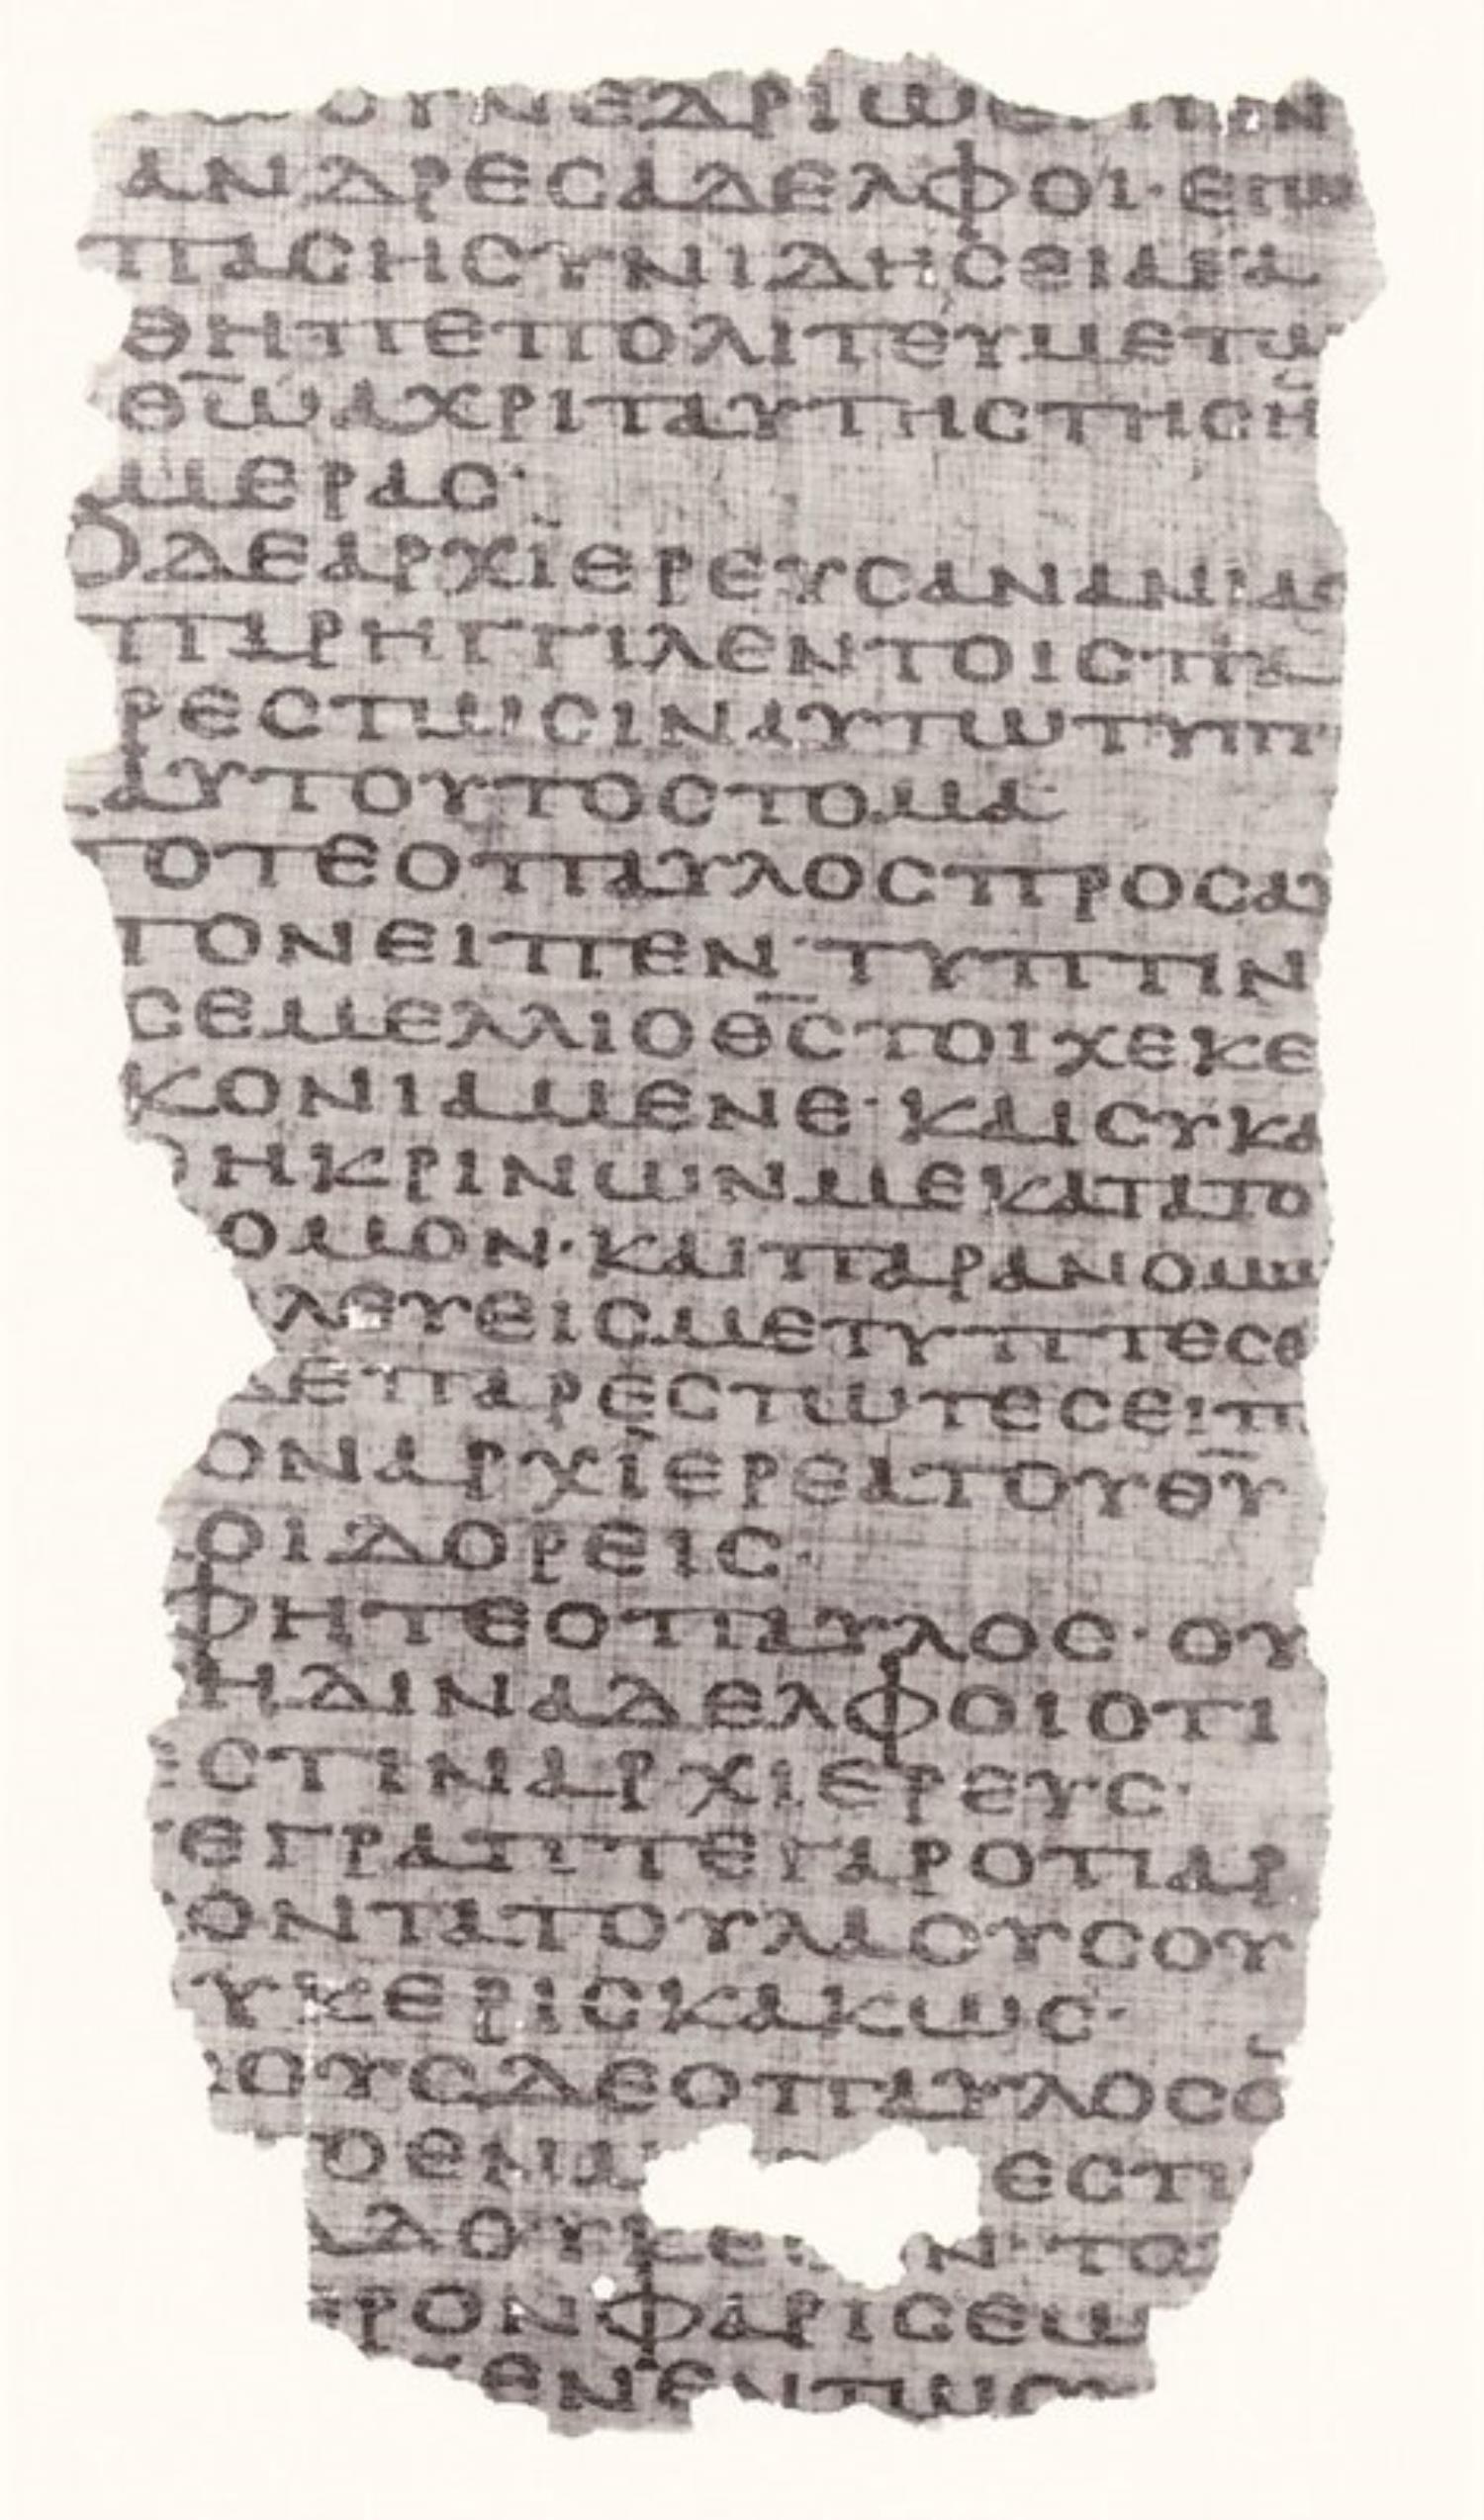 ΟΥΝΕΔΡΙΩΕΙΠΕΝ
ΑΝΔΡΕΣΑΔΕΛΦΟΙ·ΕΓΩ
ΠΑΣΗΣΥΝΙΔΗΣΘΙΑΓΑ
ΘΗΠΕΠΟΛΙΤΕΥΜΕΤΩ
Θ̅Ω̅ΑΧΡΙΤΑΥΤΗΣΤΗΣΗ
ΜΕΡΑΣ·
ΟΔΕΑΡΧΪΕΡΕΥΣΑΝΑΝΙΑΣ
ΠΑΡΗΓΓΙΛΕΝΤΟΙΣΠΑ
ΡΕΣΤΩΣΙΝΑΥΤΩΤΥΠΤ
ΑΥΤΟΥΤΟΣΤΟΜΑ
ΤΟΤΕΟΠΑΥΛΟΣΠΡΟΣΑΥ
ΤΟΝΕΙΠΕΝ·ΤΥΠΤΙΝ
ΣΕΜΕΛΛΙΟΘ̅Σ̅ΤΟΙΧΕΚΕ
ΚΟΝΙΑΜΕΝΕ·ΚΑΙΣΥΚΑ
ΘΗΚΡΙΝΩΝΜΕΚΑΤΑΤΟ
ΟΜΟΝ·ΚΑΙΠΑΡΑΝΟΜΩ
ΛΕΥΕΙΣΜΕΤΥΠΤΕΣΘ
ΔΕΠΑΡΕΣΤΩΤΕΣΕΙΠ
ΟΝΑΡΧΪΕΡΕΑΤΟΥΘ̅Υ̅
ΟΙΔΟΡΕΙΣ·
ΦΗΤΕΟΠΑΥΛΟΣ·ΟΥ
ΗΔΙΝΑΔΕΛΦΟΙΟΤΙ
ΕΣΤΙΝΑΡΧΙΕΡΕΥΣ·
ΓΕΓΡΑΠΤΕΓΑΡΟΤΙΑΡ
ΟΝΤΑΤΟΥΛΑΟΥΣΟΥ
ΥΚΕΡΙΣΚΑΚΩΣ·
ΝΟΥΣΔΕΟΠΑΥΛΟΣΟ
ΤΟΕΝΜ ΕΣΤΙ
ΔΔΟΥΚΕ Ν·ΤΟ
ΕΡΟΝΦΑΡΙΣΕΩ
ΖΕΝΕΝΤΩΣΥ